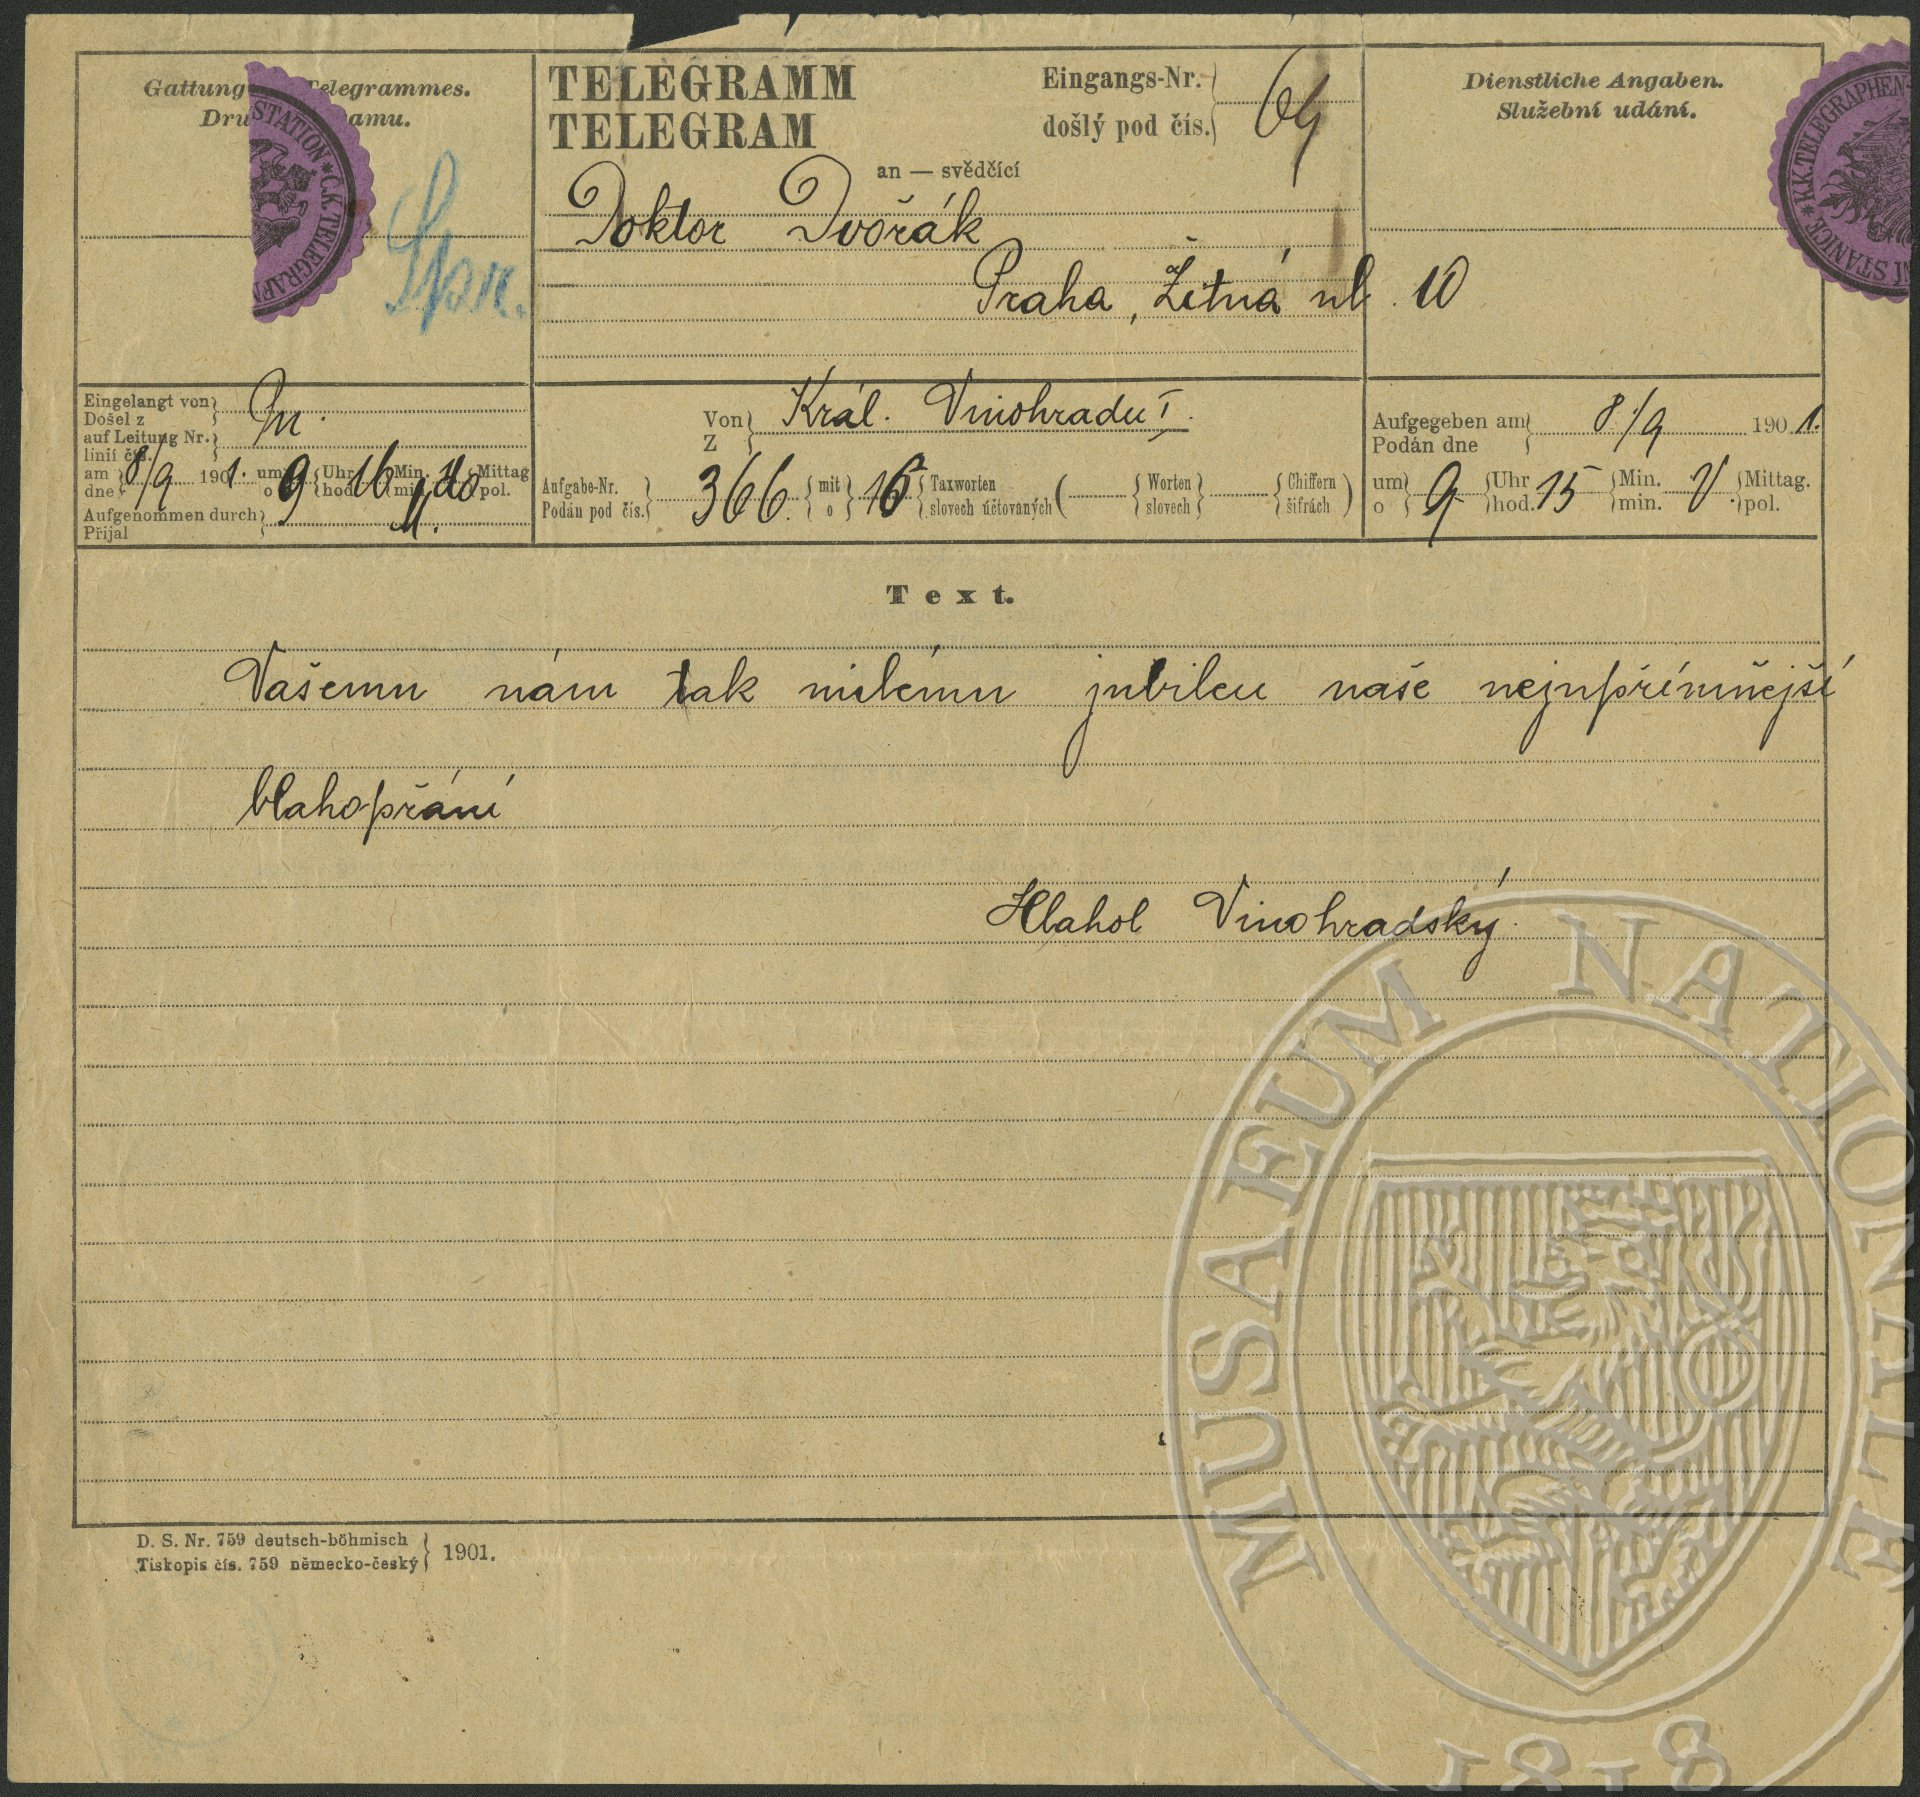 Gattung Telegrammes.
Dru amu.
STATION * C.K. TELEGRAFN
Spr.
TELEGRAMM
TELEGRAM
Eingangs-Nr.
došlý pod čís.
69
an — svědčící
Doktor Dvořák
Praha, Žitná ul. 10
Dienstliche Angaben.
Služební udání.
K.K. TELEGRAPHEN-
NÍ STANICE *
Eingelangt von
Došel z
auf Leitung Nr.
linií čís.
am 8/9 1901. um 9 Uhr 16 Min. Mittag
dne o hod. min. pol.
Aufgenommen durch
Přijal
Von Král. Vinohradu I.
Z
Aufgabe-Nr. 366 mit 16 Taxworten ( Worten Chiffern )
Podán pod čís. o slovech účtovaných slovech šifrách
Aufgegeben am 8/9 1901.
Podán dne
um 9 Uhr 15 Min. V. Mittag.
o hod. min. pol.
Text.
Vašemu nám tak milému jubileu naše nejupřímnější
blahopřání
Hlahol Vinohradský.
D. S. Nr. 759 deutsch-böhmisch
Tiskopis čís. 759 německo-český
1901.
MUSAEUM NATIONALE
1818